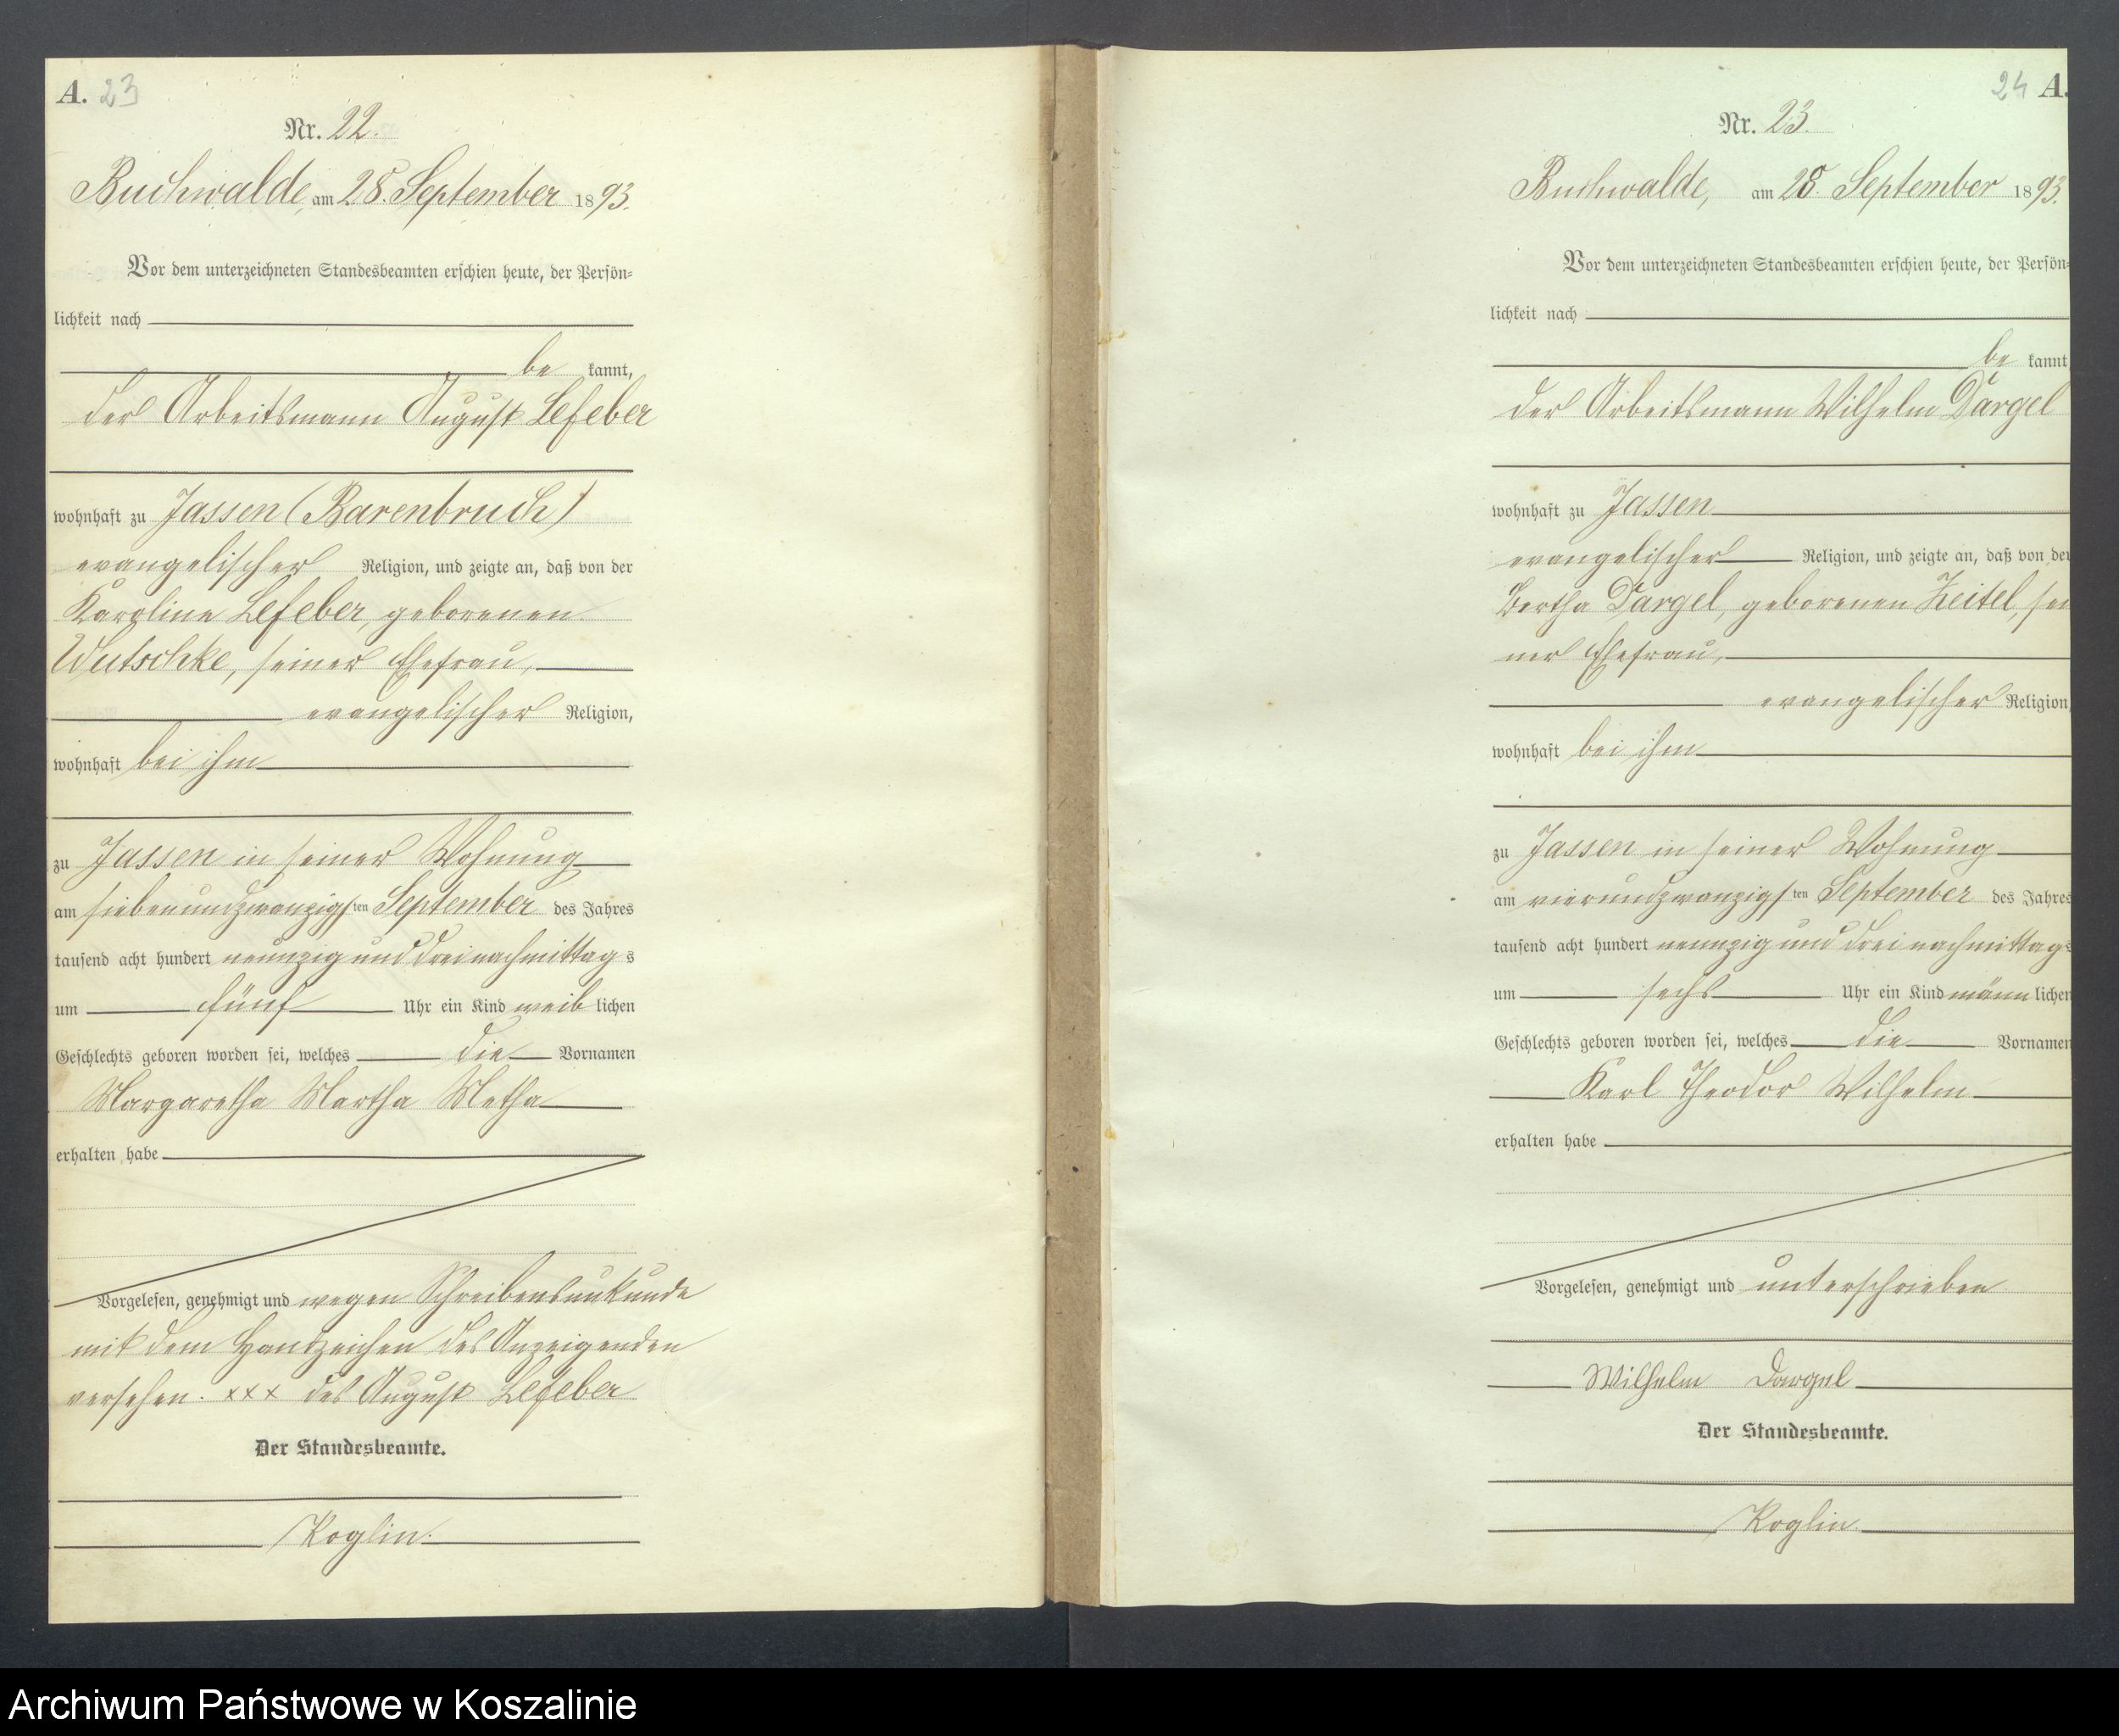 A. 23
Nr. 22.
Buchwalde, am 28. September 1893.
Vor dem unterzeichneten Standesbeamten erschien heute, der Persön-
lichkeit nach
be kannt,
der Arbeitsmann August Lefeber
wohnhaft zu Jassen (Barenbruch)
evangelischer Religion, und zeigte an, daß von der
Karoline Lefeber, geborenen
Wutschke, seiner Ehefrau,
evangelischer Religion,
wohnhaft bei ihm
zu Jassen in seiner Wohnung
am siebenundzwanzigsten September des Jahres
tausend acht hundert neunzig und drei nachmittags
um fünf Uhr ein Kind weiblichen
Geschlechts geboren worden sei, welches die Vornamen
Margaretha Martha Metha
erhalten habe
Vorgelesen, genehmigt und wegen Schreibensunkunde
mit dem Handzeichen des Anzeigenden
versehen. xxx des August Lefeber
Der Standesbeamte.
Koglin.
24 A.
Nr. 23.
Buchwalde, am 28. September 1893.
Vor dem unterzeichneten Standesbeamten erschien heute, der Persön-
lichkeit nach
be kannt
der Arbeitsmann Wilhelm Dargel
wohnhaft zu Jassen
evangelischer Religion, und zeigte an, daß von der
Bertha Dargel, geborenen Zeitel, sei
ner Ehefrau,
evangelischer Religion,
wohnhaft bei ihm
zu Jassen in seiner Wohnung
am vierundzwanzigsten September des Jahres
tausend acht hundert neunzig und drei nachmittags
um sechs Uhr ein Kind männlichen
Geschlechts geboren worden sei, welches die Vornamen
Karl Theodor Wilhelm
erhalten habe
Vorgelesen, genehmigt und unterschrieben
Wilhelm Dargel
Der Standesbeamte.
Koglin.
Archiwum Państwowe w Koszalinie